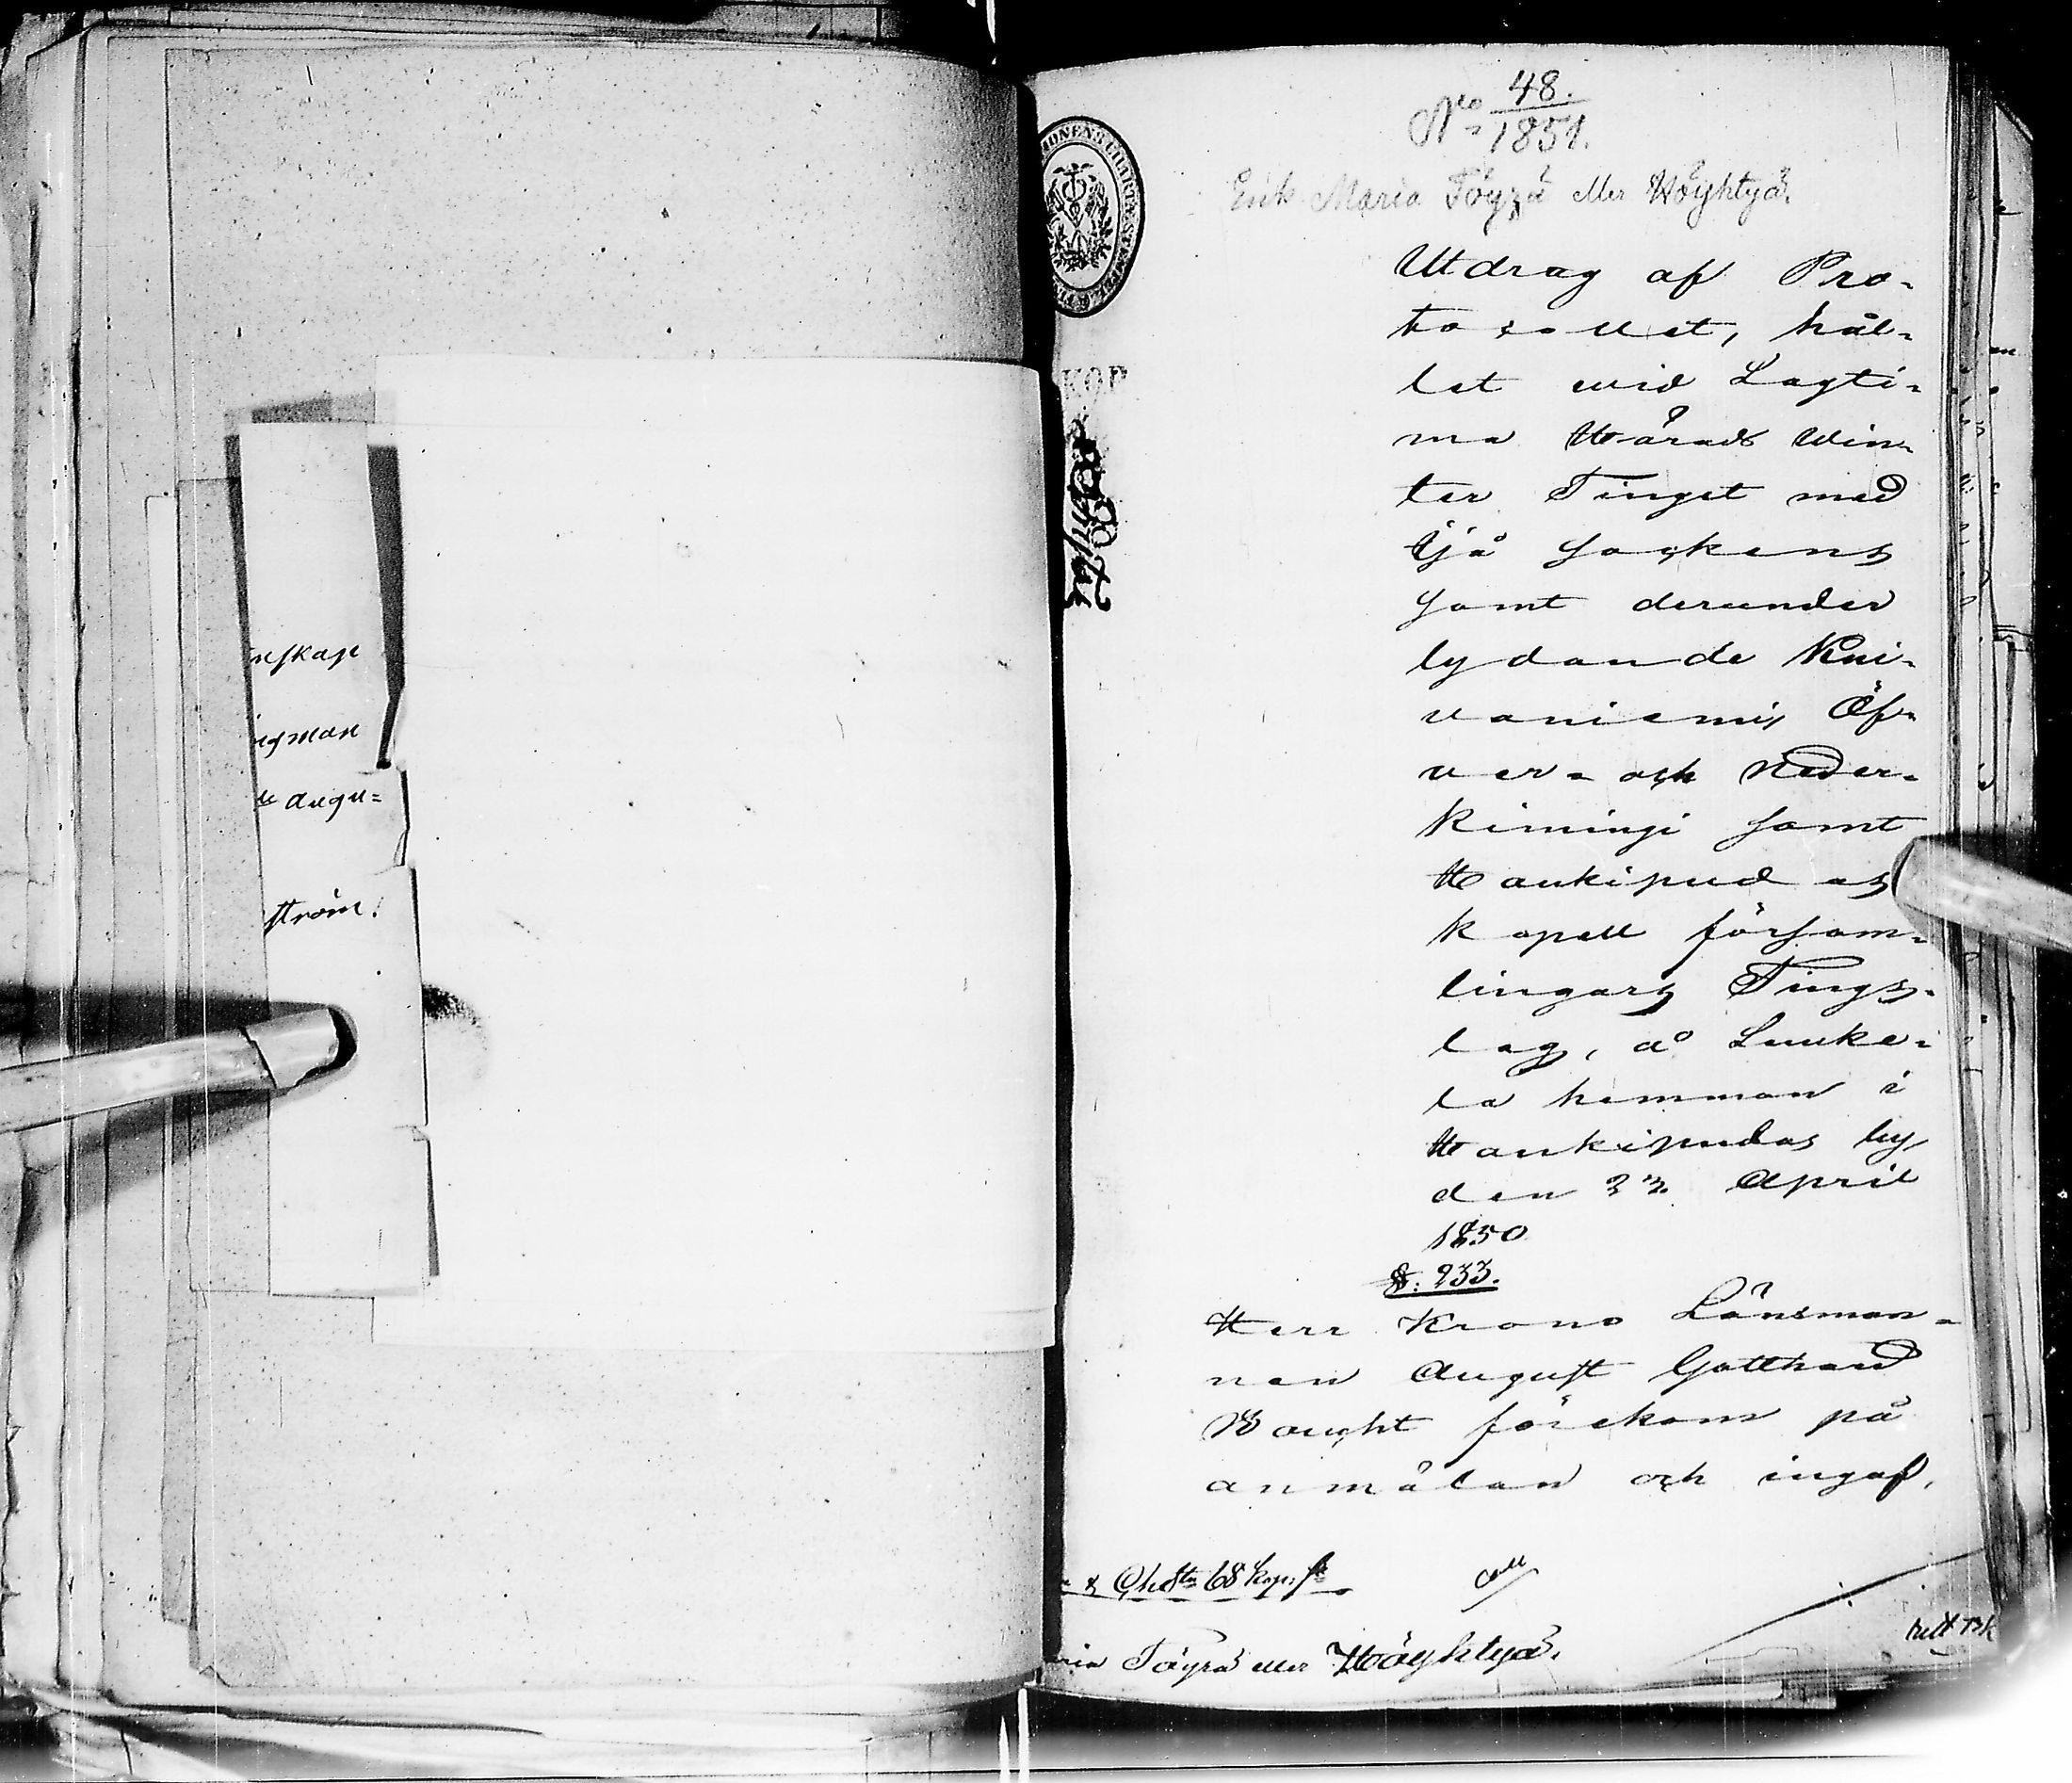 nskap
igman
de Augu=
ström.
48.
No 1851.
Erik Maria Töyrä eller Höyhtyä.
Utdrag af Pro-
tocollet, hål-
let wid Lagti-
ma Härads Win-
ter Tinget med
Ijå Sockens
samt derunder
lydande Kui-
vaniemi, Öf-
ver- och Neder-
Kiimingi samt
Haukipudas
kapell försam-
lingars Tings-
lag, å Luuke-
la hemman i
Haukipudas by,
den 22 April
1850
§. 233.
Herr Krono Länsman-
nen August Gotthard
förekom på
anmälan och ingaf,
68 Kop. Sr
Coll
ria Töyrä eller Höyhtyä.